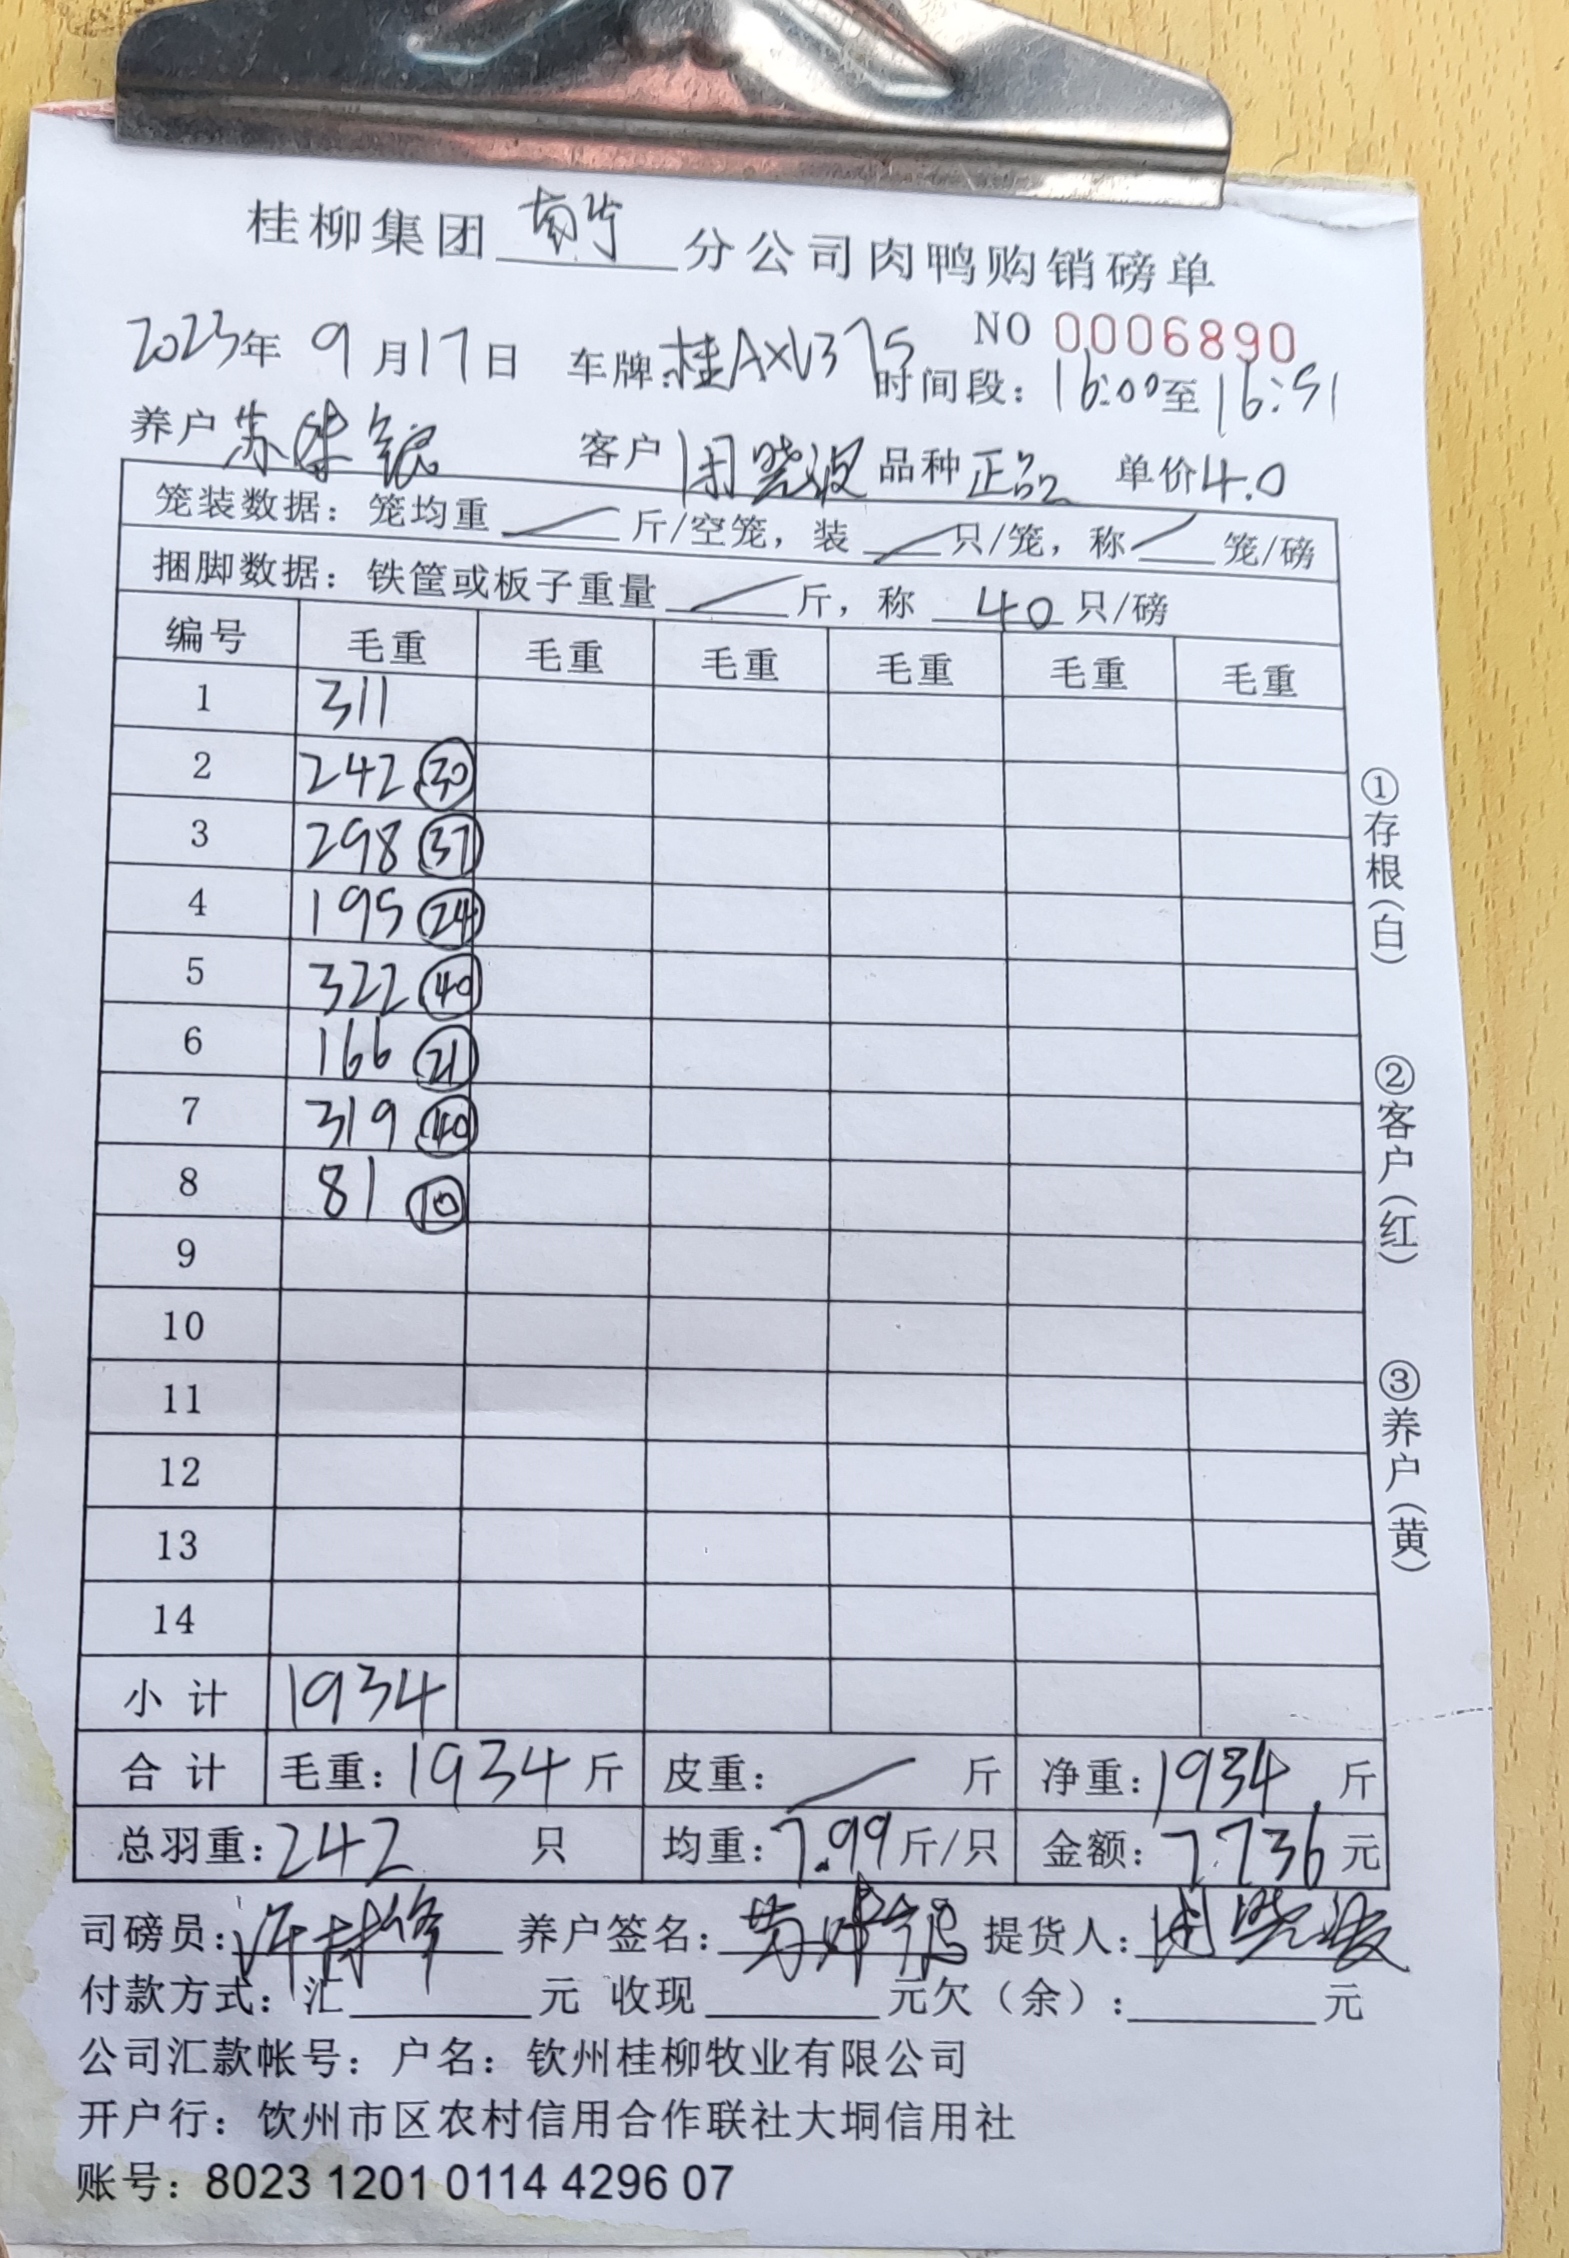 桂柳集团 南宁 分公司肉鸭购销磅单
NO 0006890
2023年 9月17日 车牌:桂AXV375 时间段:16:00至16:51
养户 苏 银 客户 闭晓波 品种 正品 单价4.0
笼装数据:笼均重 / 斤/空笼,装 / 只/笼,称 / 笼/磅
捆脚数据:铁筐或板子重量 / 斤,称 40 只/磅
编号 毛重 毛重 毛重 毛重 毛重 毛重
1 311
2 242 30
3 298 37
4 195 24
5 322 40
6 166 21
7 319 40
8 81 10
9
10
11
12
13
14
小计 1934
合计 毛重:1934斤 皮重: / 斤 净重:1934斤
总羽重:242 只 均重:7.99斤/只 金额:7736元
司磅员:许 养户签名: 提货人:闭晓波
付款方式:汇 元 收现 元欠(余): 元
公司汇款帐号:户名:钦州桂柳牧业有限公司
开户行:饮州市区农村信用合作联社大垌信用社
账号:8023 1201 0114 4296 07
①存根(白)
②客户(红)
③养户(黄)